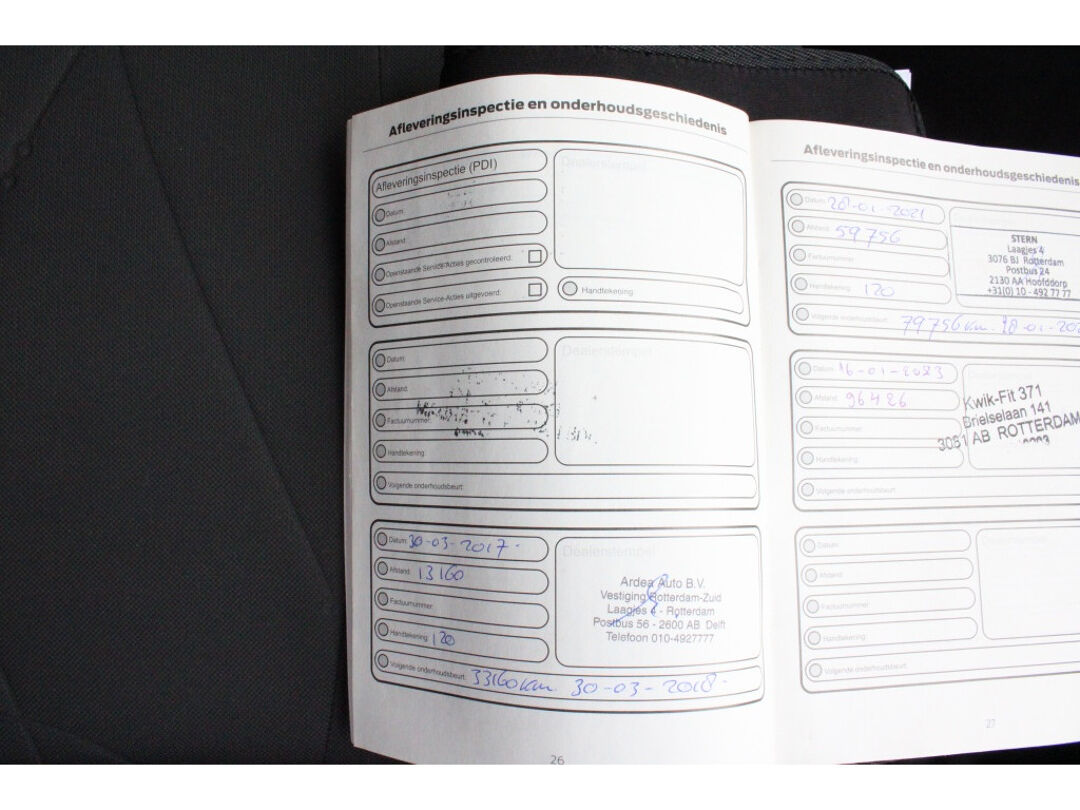 Afleveringsinspectie en onderhoudsgeschiedenis
Afleveringsinspectie (PDI)
Dealerstempel
Datum:
Afstand:
Openstaande Service-Acties gecontroleerd:
Openstaande Service-Acties uitgevoerd:
Handtekening:
Datum:
Dealerstempel
Afstand:
Factuurnummer:
Handtekening:
Volgende onderhoudsbeurt:
Datum: 30-03-2017
Dealerstempel
Afstand: 13160
Factuurnummer:
Handtekening: 120
Ardea Auto B.V.
Vestiging Rotterdam-Zuid
Laagjes 4 - Rotterdam
Postbus 56 - 2600 AB Delft
Telefoon 010-4927777
Volgende onderhoudsbeurt: 33160 km. 30-03-2018
26
Afleveringsinspectie en onderhoudsgeschiedenis
Datum: 28-01-2021
Afstand: 59756
Factuurnummer:
Handtekening: 120
STERN
Laagjes 4
3076 BJ Rotterdam
Postbus 24
2130 AA Hoofddorp
+31(0) 10 - 492 77 77
Volgende onderhoudsbeurt: 79756 km.
Datum: 16-01-2023
Afstand: 96426
Factuurnummer:
Handtekening:
Kwik-Fit 371
Brielselaan 141
3081 AB ROTTERDAM
Volgende onderhoudsbeurt:
Datum:
Afstand:
Factuurnummer:
Handtekening:
Volgende onderhoudsbeurt:
27